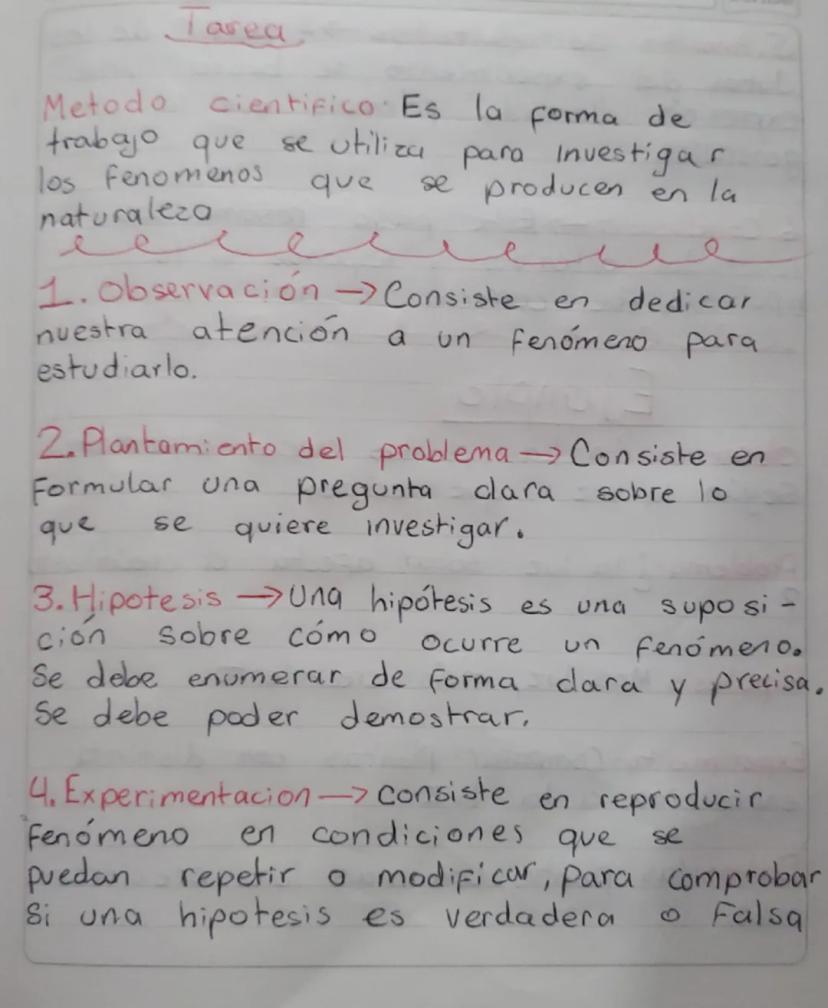 Tarea
Metodo cientifico: Es la forma de
trabajo que se utiliza para investigar
los fenomenos que se producen en la
naturaleza
1. Observación → Consiste en dedicar
nuestra atención a un fenómeno para
estudiarlo.
2. Plantamiento del problema → Consiste en
Formular una pregunta clara sobre lo
que se quiere investigar.
3. Hipotesis → Una hipótesis es una suposi-
ción sobre cómo ocurre un fenómeno.
Se debe enumerar de forma clara y precisa.
Se debe poder demostrar.
4. Experimentacion → consiste en reproducir
Fenómeno en condiciones que se
puedan repetir o modificar, para comprobar
Si una hipotesis es verdadera o Falsa